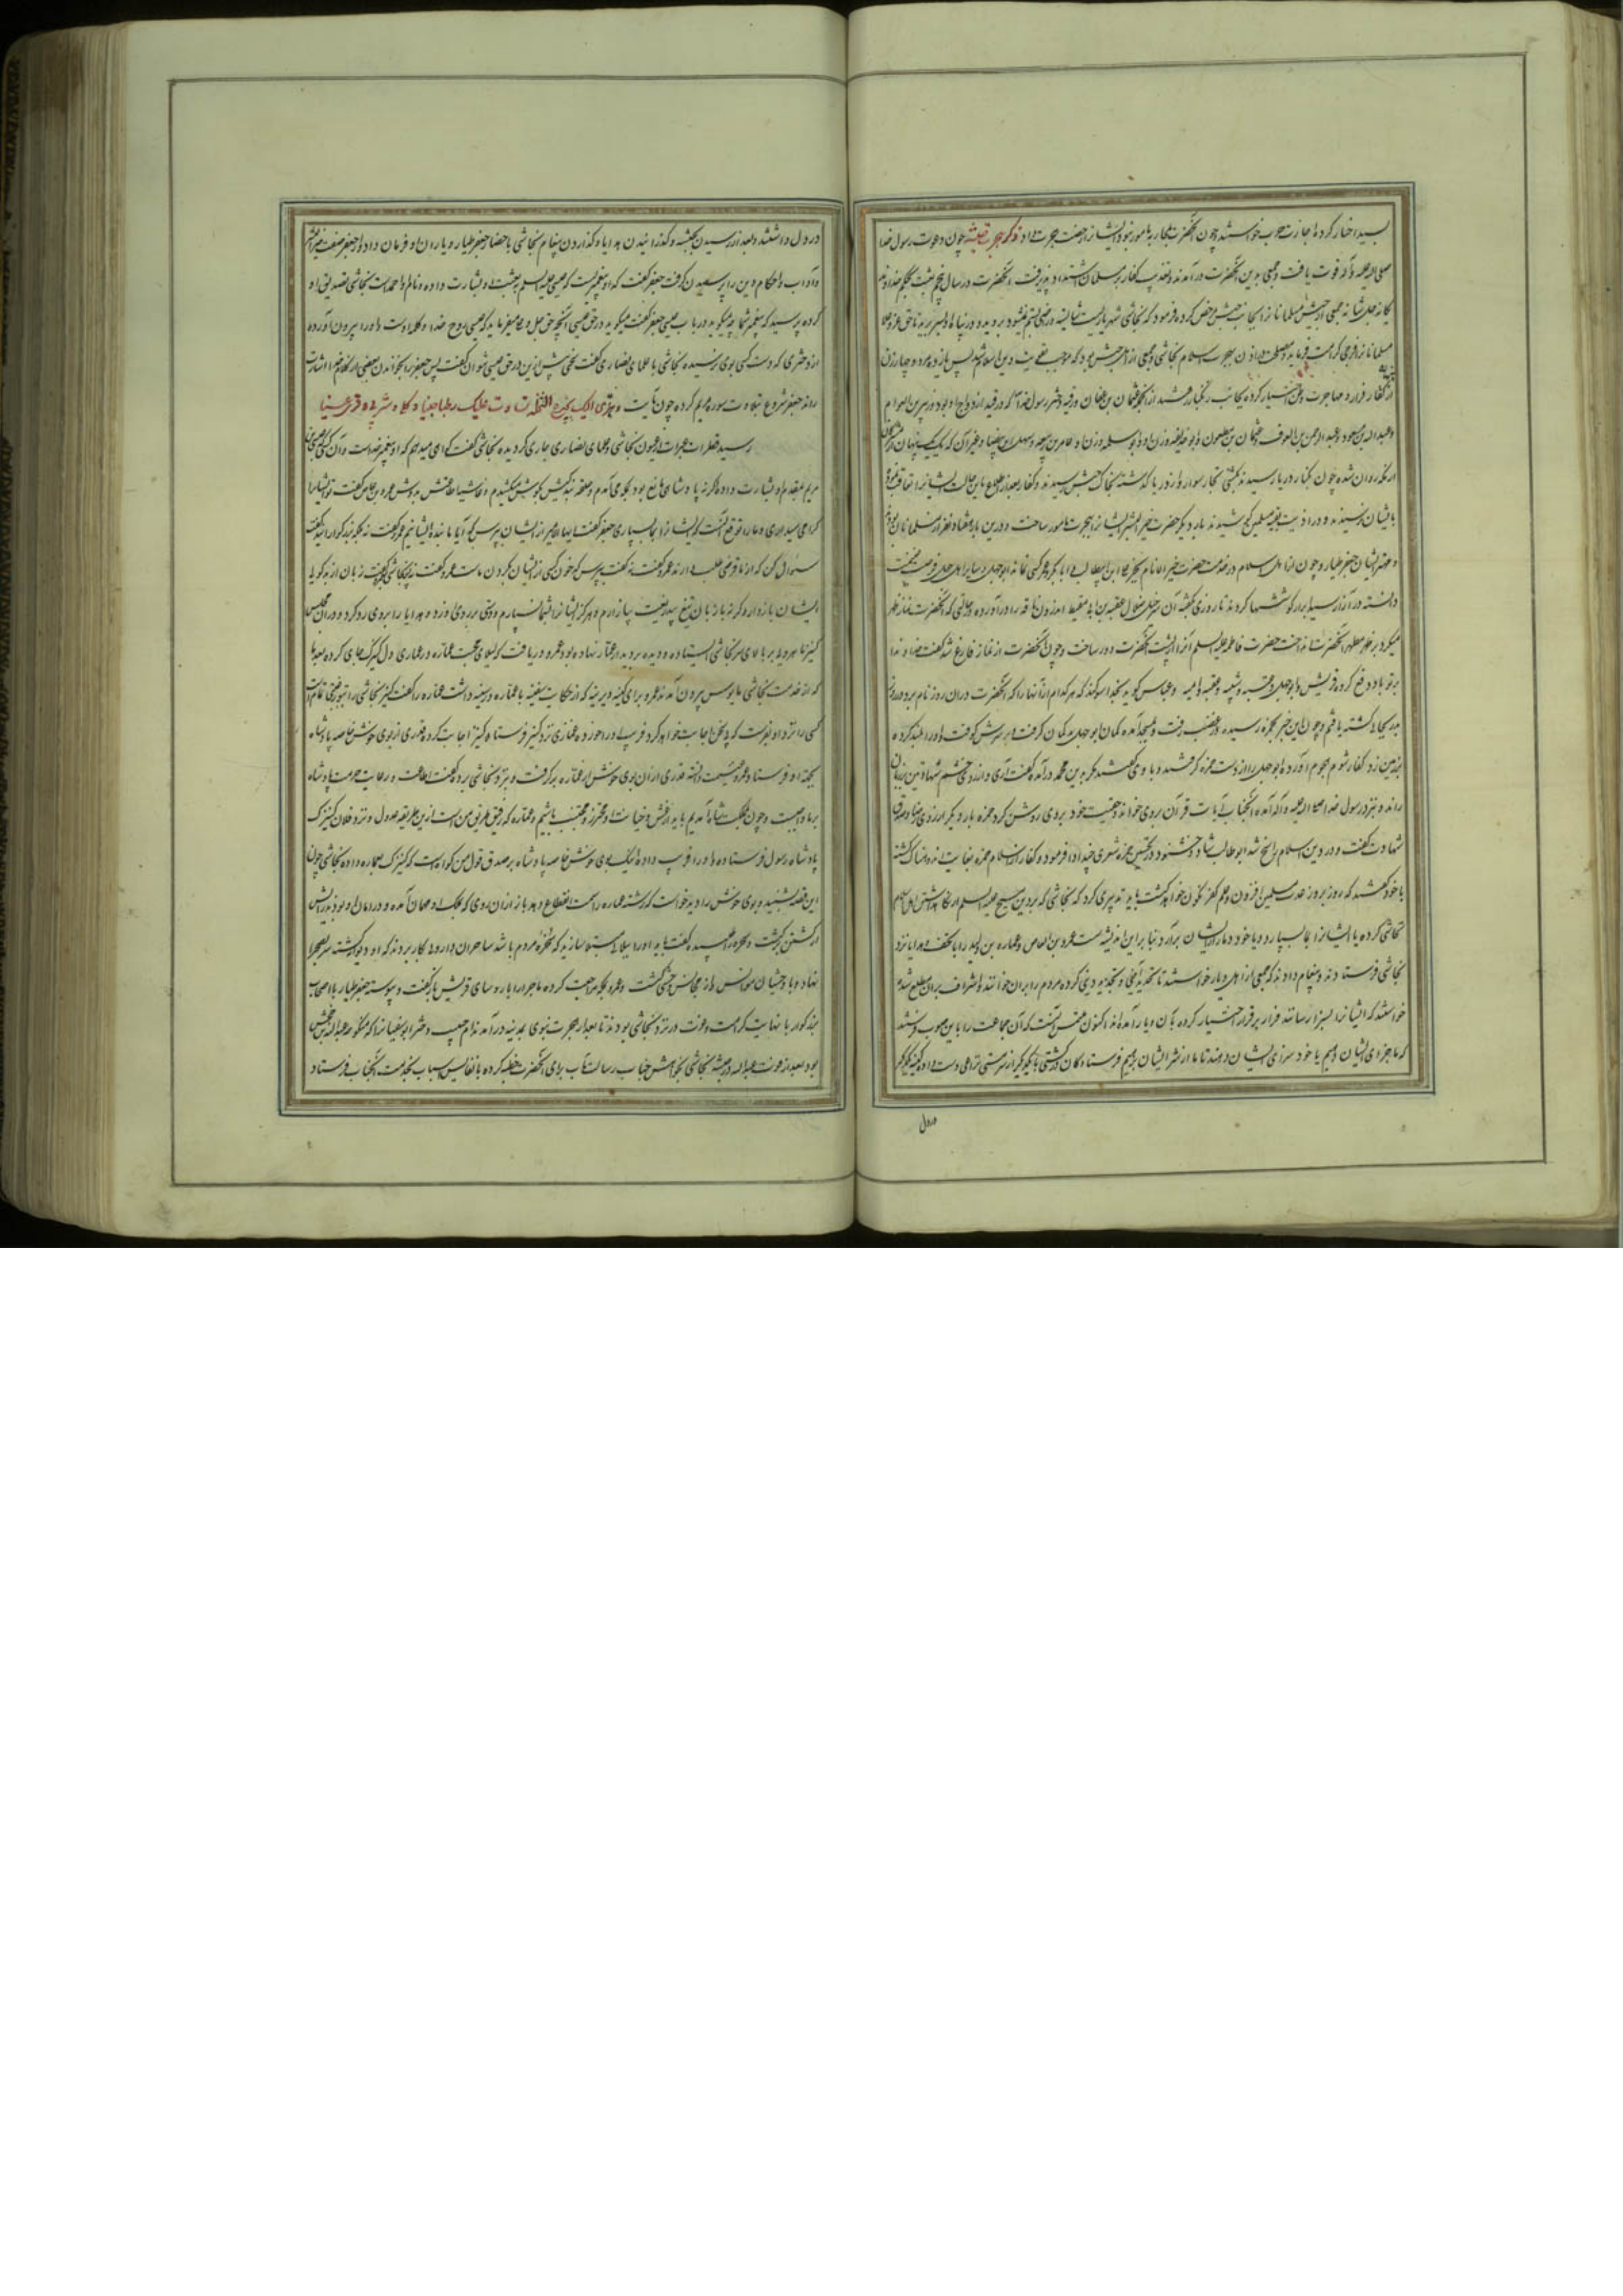 بسیار اضرار کردند اجازت حرب خواستند چون آنحضرت بمحاربه مامور نبود ایشانرا رخصت هجرت داد ذکر هجرت حبشه چون دعوت رسول خدا
صلی الله علیه وآله قوت یافت و جمعی بدین آنحضرت در آمدند و تعذیب کفار بر مسلمانان اشتداد پذیرفت آنحضرت در سال پنجم بعثت بحکم خداوند
یگانه جل شانه جمعی از مسلمانانرا بجانب حبش مرخص کرده فرمود که نجاشی شهریاریست شایسته و راضی بستم نمیشود بروید و در پناه او بسر برید تا حق عز و علا
مسلمانانرا فرجی کرامت فرماید
از کفار فرار و مهاجرت وطن اختیار کرده بجانب زنگبار شدند از آنجمله عثمان بن عفان و رقیه دختر رسول خدا که رقیه در ازدواج او بود و زبیر بن العوام
و عبدالله بن مسعود و عبدالرحمن بن العوف و عثمان بن مظعون و ابوحذیفه و زن او و ابوسلمه و زن او و عامر بن ربیعه و سهل ابن بیضا و غیر آن که یک یک پنهان
از مکه روان شده چون بکنار دریا رسیدند بکشتی تجار سوار و از دریا گذشته بخاک حبش رسیدند و کفار بعد از اطلاع باین حالت ایشانرا تعاقب نموده
بایشان نرسیدند و در اذیت بقیه مسلمین میکوشیدند بار دیگر حضرت خیر البشر ایشانرا بهجرت مامور ساخت و درین بار هشتاد نفر از مسلمانان بودند
و مهتر ایشان جعفر طیار و چون از اهل اسلام در خدمت حضرت خیر الانام بجز علی ابن ابیطالب و ابابکر و عمر کسی نماند ابوجهل و سایر اهل جهل فرصت غنیمت
دانسته در آزار سید ابرار کوششها کردند تا روزی
میکرد بر ظهر مطهر آنحضرت انداخت حضرت فاطمه علیها السلام آنرا از پشت آنحضرت دور ساخت و چون آنحضرت از نماز فارغ شد گفت خداوندا
بر تو باد دفع گروه قریش و ابوجهل و عتبه و شیبه و عقبه و امیه و عباس گوید بخدا سوگند که هر کدام از آنها را که آنحضرت در آن روز نام برد در روز
بدر بیجان گشته یافتم و چون این خبر بحمزه رسید در غضب رفت و بمسجد آمده کمان ابوجهل
بزمین زد کفار شوم هجوم آورده ابوجهل را از دست حمزه گرفتند و با وی گفتند مگر بدین محمد در آمده گفت آری و از روی خشم شهادتین بر زبان
راند و بنزد رسول خدا صلی الله علیه وآله آمده آنجناب آیات قرآن بروی خواند و حقیقت خود بروی روشن کرد حمزه بار دیگر از روی صفا و صدق
شهادت گفت و در دین اسلام راسخ شد ابوطالب شاد و خشنود در تحسین حمزه شعری چند ادا فرمود و کفار از اسلام حمزه بغایت اندوهناک گشته
با خود گفتند که روز بروز عدت مسلمین افزون و علم کفر نگون خواهد گشت باید تدبیری کرد که نجاشی که بر دین مسیح علیه السلام
تحاشی کرده یا ایشانرا بما سپارد و یا خود دمار از ایشان برآرد بنابراین اندیشه عمرو بن العاص و عماره بن الولید را با تحف و هدایا نزد
نجاشی فرستادند و پیغام دادند که جمعی از اهل دیار
خواستند که ایشانرا بسزا رسانند فرار بر قرار اختیار کرده بآن دیار آمده اند اکنون ملتمس آنست که آن جماعت را باین صوب فرستند
که ما جزای ایشان دهیم یا خود سزای ایشان دهند تا ما از شر ایشان برهیم فرستادگان در کشتی با یکدیگر از سر مستی نزاعی دست داده کینه یکدیگر
در دل
در دل داشتند و بعد از رسیدن بحبشه و گذرانیدن هدایا و گذاردن پیغام نجاشی باحضار جعفر طیار و یاران او فرمان داد و از جعفر صفت پیغمبر
و آداب و احکام دین را پرسیدن گرفت جعفر گفت که او پیغمبریست که عیسی علیه السلام ببعثت او بشارت داده و نام او احمد است نجاشی تصدیق او
کرده پرسید که پیغمبر شما چه میگوید در باب عیسی جعفر گفت میگوید در حق عیسی آنچه حق جل و علا میفرماید که عیسی روح خدا و کلمه اوست و او را بیرون آورده
از دختری که دست کسی بوی نرسیده نجاشی با علمای نصاری گفت سخنی بیش ازین در حق عیسی نتوان گفت پس جعفر را بخواندن بعضی از کلام خدا اشارت
راند جعفر شروع بتلاوت سوره مریم کرده چون بآیت وهزی الیک بجذع النخلة تساقط علیک رطبا جنیا فکلی واشربی وقری عینا
رسید قطرات عبرات از عیون نجاشی و علمای نصاری جاری گردیده نجاشی گفت گواهی میدهم که او پیغمبر خداست و آن کسی است که عیسی بن
مریم بمقدم او بشارت داده و اگر نه پادشاهی مانع بود بمکه می آمدم و حلقه بندگیش در گوش میکشیدم و غاشیه اطاعتش بدوش عمرو بن عاص گفت
گرامی میداری و ما را توقع آنست که ایشانرا بما بسپاری جعفر گفت ایها الامیر از ایشان بپرس که آیا ما بنده ایشانیم عمرو گفت نه بلکه بزرگوارانید گفت
سئوال کن که از ما قرضی طلب دارند عمرو گفت نه گفت بپرس که خون کسی از ایشان بگردن ماست عمرو گفت نه نجاشی گفت زبان از بدگویی
ایشان باز دار و گرنه باز زبان تیغ بیدریغت بیازارم و هرگز ایشانرا بشما نسپارم و دستی بر روی او زد و هدایا را بروی رد کرد و در آن مجلس
کنیز ماهروئی بر بالای سر نجاشی ایستاده و دیده بر دیدار عماره نهاده بود عمرو دریافت که لیلای محبت عماره در عماری دل کنیزک جای کرده بعد از آن
که از خدمت نجاشی مایوس بیرون آمدند عمرو برای کینه دیرینه که از حکایت سفینه با عماره در سینه داشت عماره را گفت کنیز نجاشی را
کسی را نزد او بفرست که یقین اجابت خواهد کرد
بجهة او فرستاد و عمرو غنیمت دانسته قدری از آن بوی خوش از عماره برگرفت و بنزد نجاشی برده گفت اطاعت و رعایت حرمت پادشاه
بر ما واجبست و چون بملک شما آمدیم باید از غش و خیانت او محترز و مجتنب باشیم و عماره که رفیق طریق من است ازین طریقه عدول و نزد فلان کنیزک
پادشاه رسول فرستاده و او را فریب داده اینک بوی خوش خاصه پادشاه بر صدق قول من گواه است که کنیزک بعماره داده نجاشی چون
این قصه بشنید و بوی خوش را دید خواست که رشته عماره را سمت انقطاع دهد باز از آن روی که بملک او مهمان آمده و در امان او بود
از کشتن گذشت و سحره را طلبیده گفت باید او را بلائی مبتلا سازید که سخره مردم باشد ساحران دارو ها بکار بردند که او دیوانه گشته سر بصحرا
نهاد و با وحشیان مؤانس و از مجالس وحشی گشت و عمرو بمکه مراجعت کرده ماجرا را با روسای قریش بازگفت و پیوسته جعفر طیار با اصحاب
بزرگوار با نهایت کرامت و عزت در نزد نجاشی بودند تا بعد از هجرت نبوی بمدینه در آمدند ام حبیب دختر ابوسفیانرا که منکوحه عبدالله جحش
بود بعد از فوت عبدالله در حبشه نجاشی بخواهش جناب رسالت مآب برای آنحضرت خطبه کرده با نفایس اسباب بخدمت آنجناب فرستاد